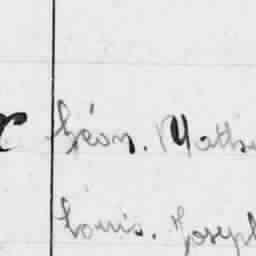 Léon. Math
Louis. Joseph